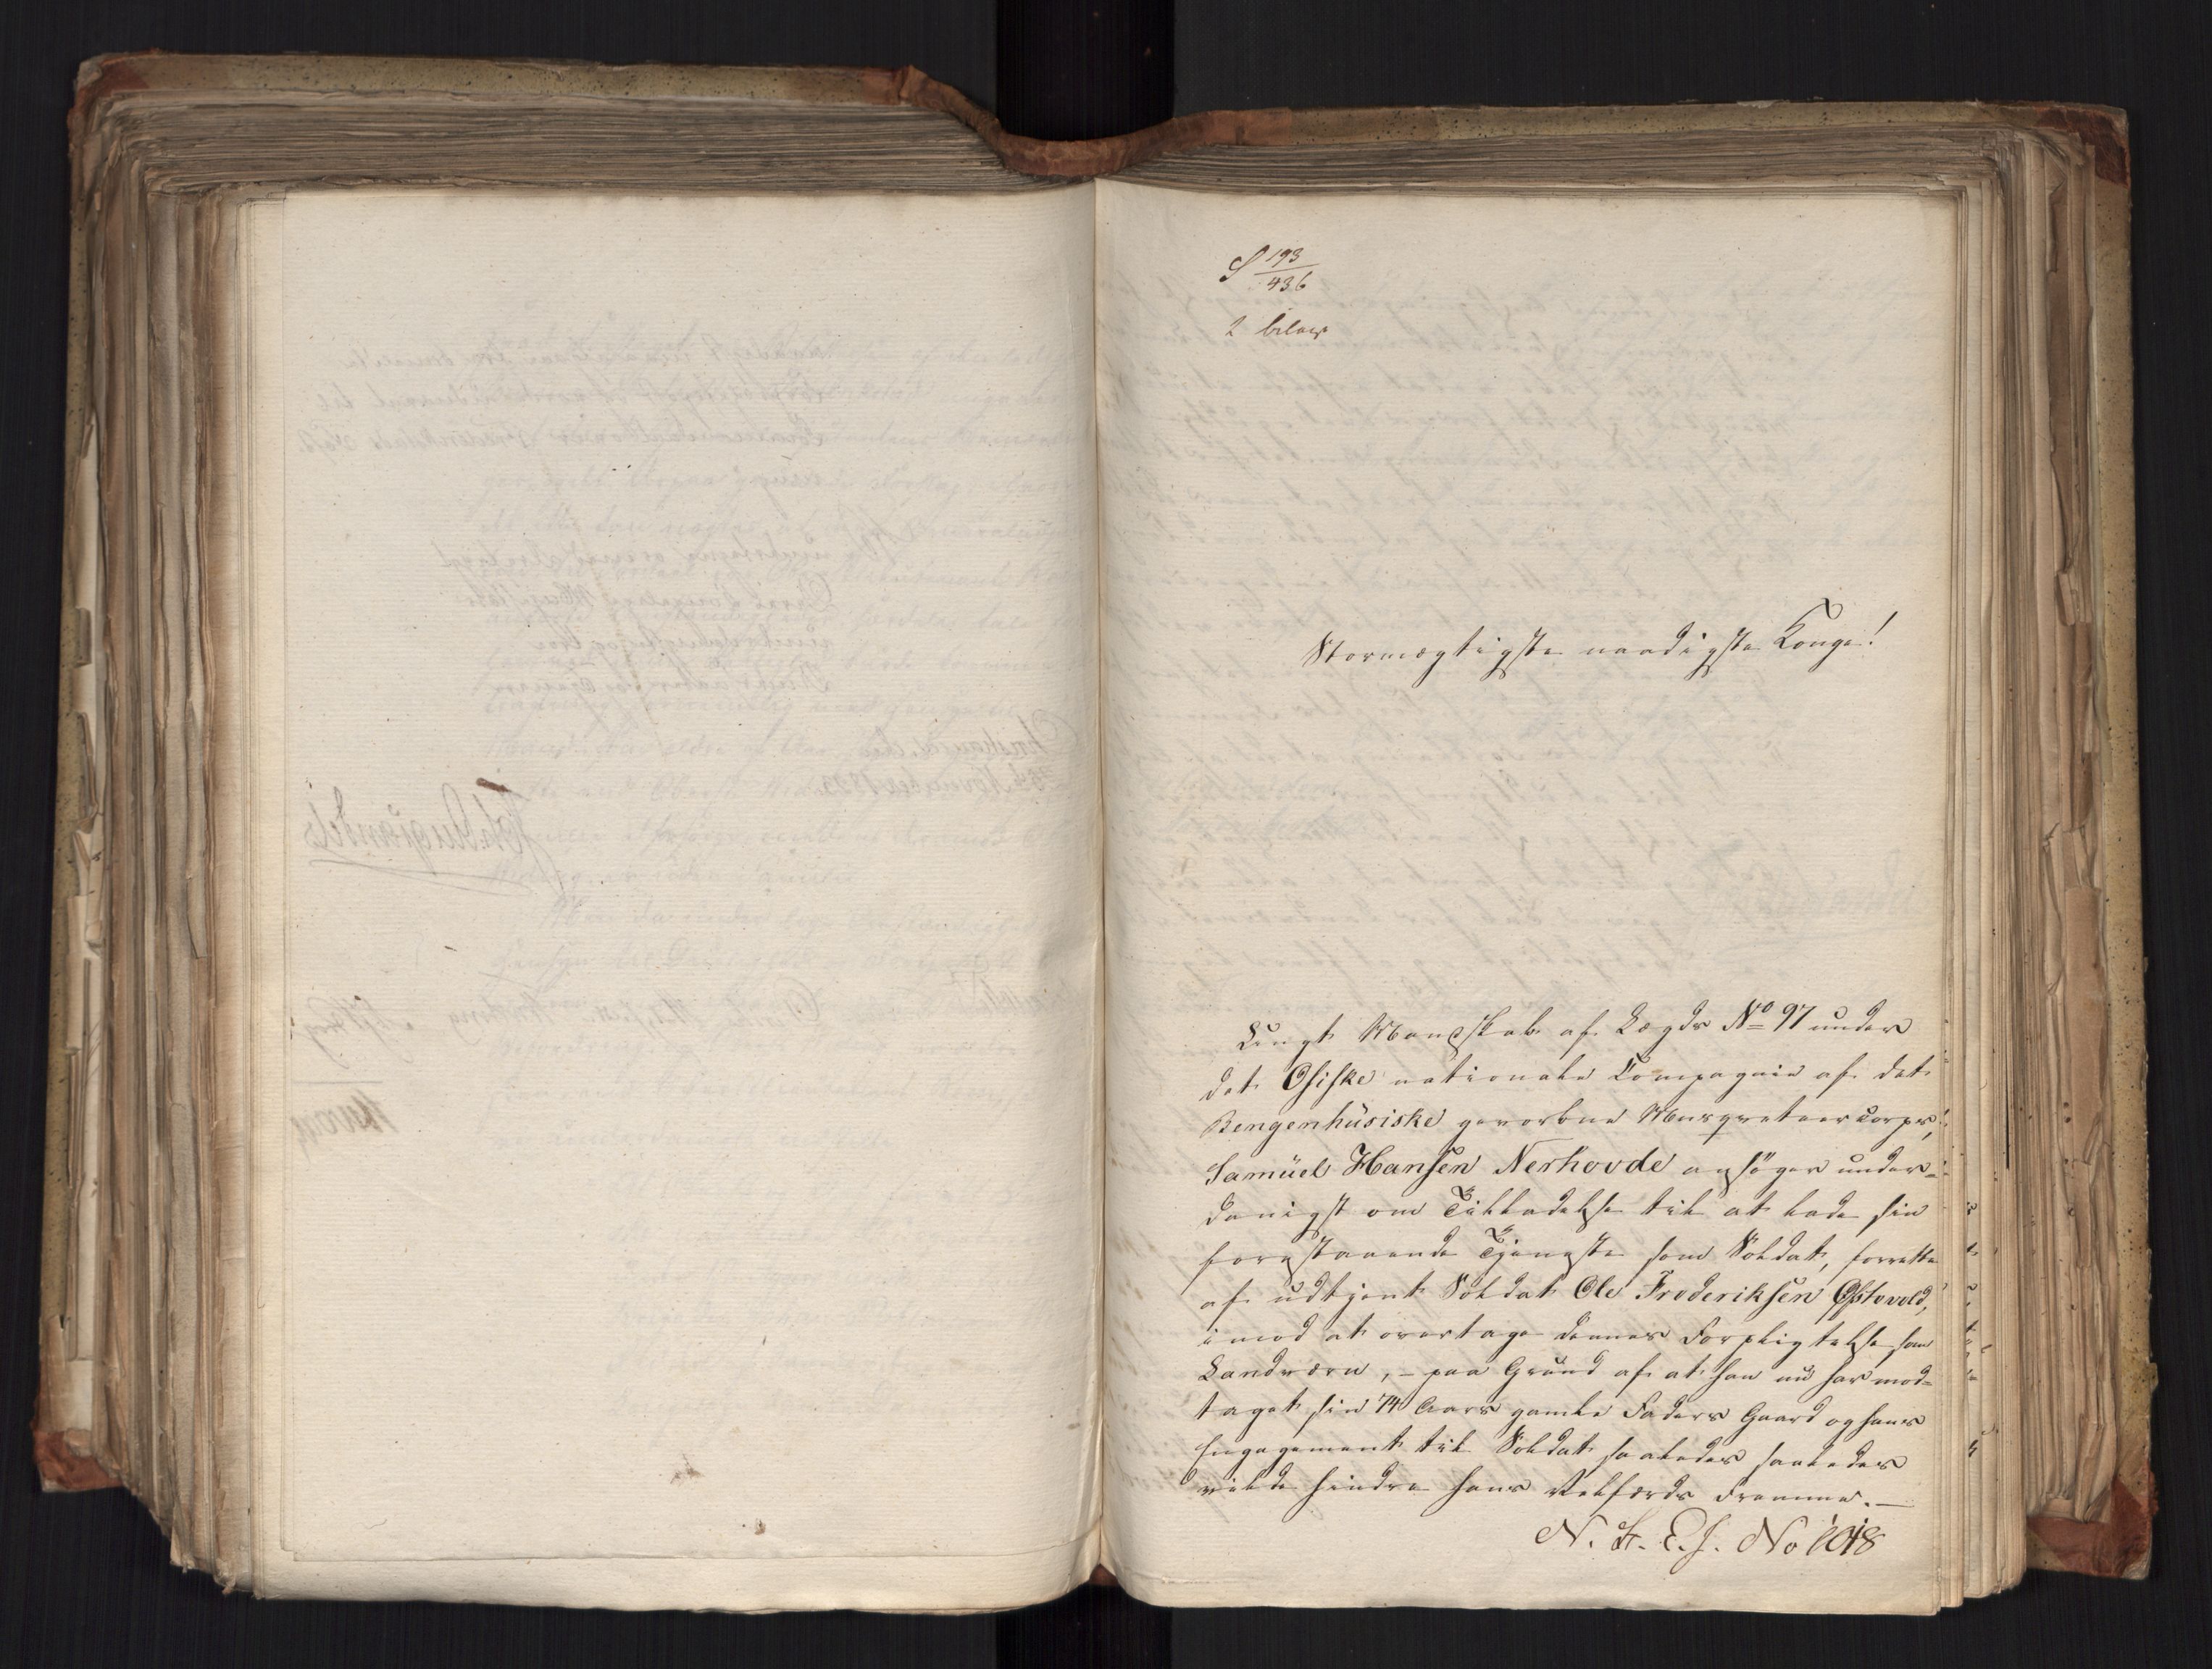 S 193/436
2 bilag
Stormægtigste naadigste Konge!
Ungt Mandskab af Lægds No 97 under
det Osiske nationale Compagnie af det
Bergenhusiske gevorbne Musqueteer Corps,
Samüel Hansen Nerhovde ansøger under-
danigst om Tilladelse til at lade sin
forestaaende Tjeneste som Soldat, forrette
af udtjent Soldat Ole Frederiksen Østevold,
imod at overtage dennes Forpligtelse som
Landværn, - paa Grund af at han nu har mod-
taget sin 74 Aars gamle Faders Gaard og hans
Engagement til Soldat saaledes saaledes
vilde hindre hans Velfærds Fremme. -
N. F. E. J. No 1018